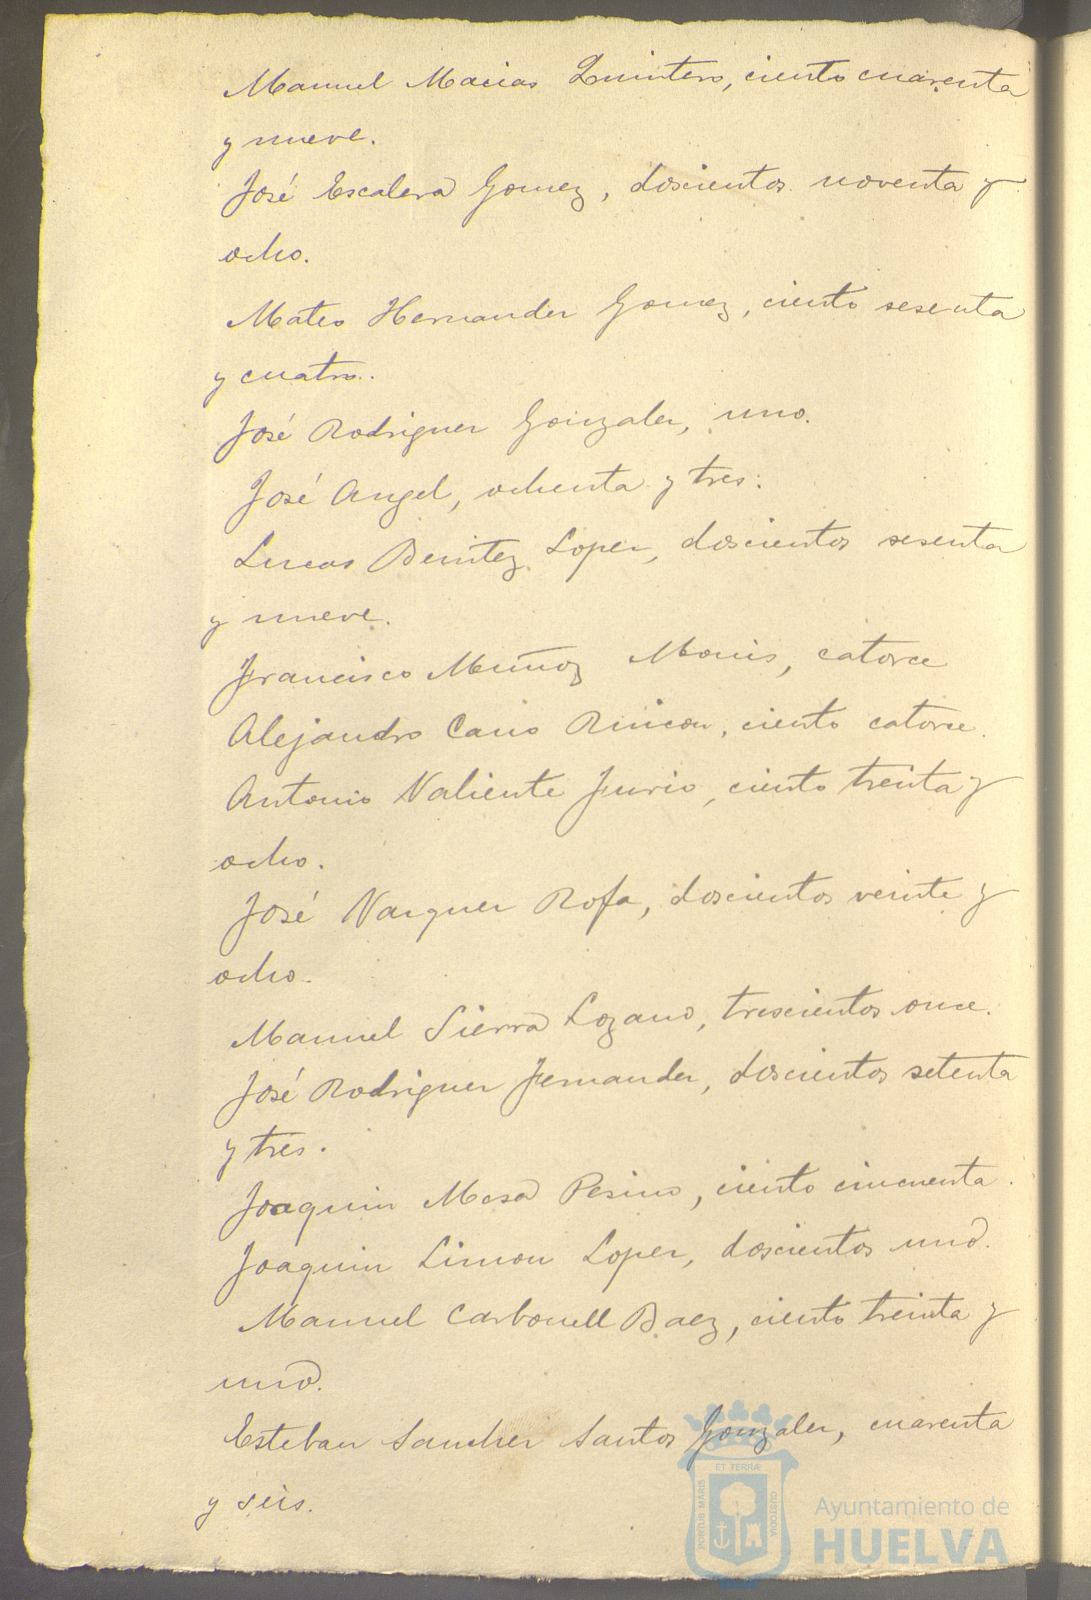 Manuel Macias Quintero, ciento cuarenta
y nueve.
José Escalera Gomez, doscientos noventa y
ocho.
Mateo Hernander Gomez, ciento sesenta
y cuatro.
José Rodriguer Gonzaler, uno.
José Angel, ochenta y tres.
Lucas Benitez Loper, doscientos sesenta
y nueve.
Francisco Muñoz Monis, catorce
Alejandro Cano Rincon, ciento catorce.
Antonio Valiente Jurio, ciento treinta y
ocho.
José Varquer Rofa, doscientos veinte y
ocho.
Manuel Sierra Lozano, trescientos once.
José Rodriguer Fernander, doscientos setenta
y tres.
Joaquin Mesa Pesino, ciento cincuenta.
Joaquin Limon Loper, doscientos uno.
Manuel Carbonell Baez, ciento treinta y
uno.
Esteban Sancher Santos Gonzaler, cuarenta
y seis.
PORTUS MARIS
ET TERRÆ
CUSTODIA
Ayuntamiento de
HUELVA